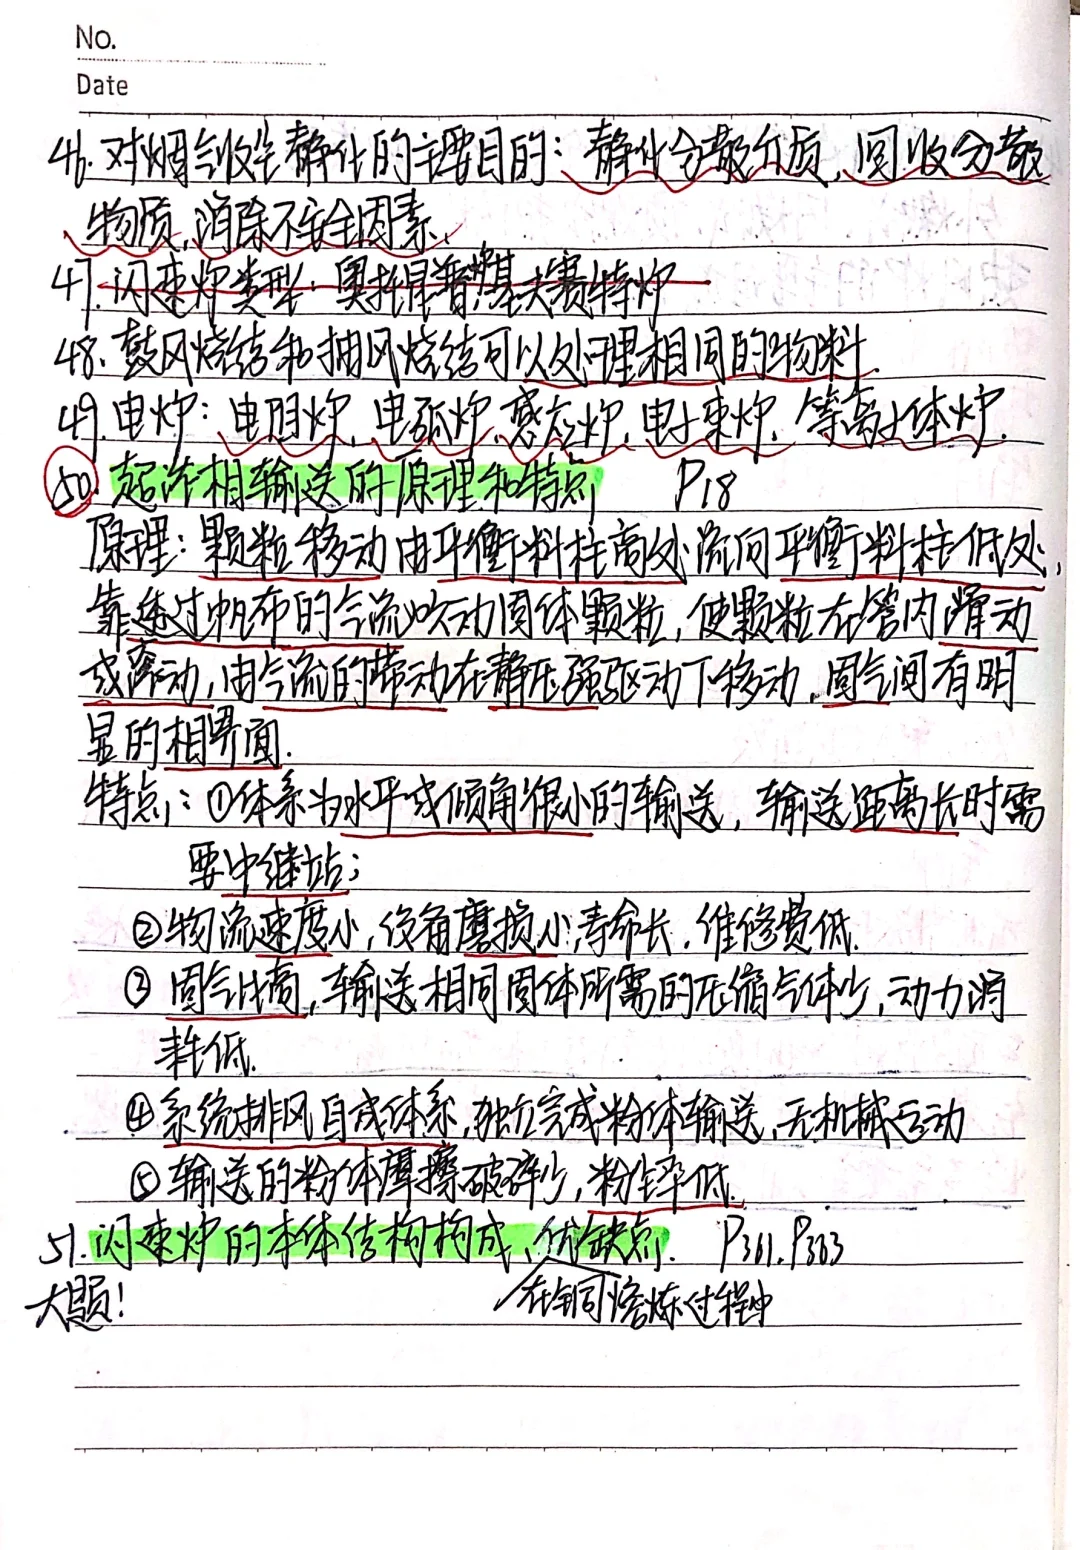 No.
Date
46. 对烟气收尘静化的主要目的：静化分散介质，回收分散
物质，消除不安全因素.
47. 闪速炉类型：奥托昆普炉
48. 鼓风烧结和抽风烧结可以处理相同的物料.
49. 电炉：电阻炉、电弧炉、感应炉、电子束炉、等离子体炉.
50. 超浓相输送的原理和特点 P18
原理：颗粒移动由平衡料柱高处流向平衡料柱低处，
靠透过帆布的气流吹动固体颗粒，使颗粒在管内滑动
或滚动，由气流的带动在静压强驱动下移动，固气间有明
显的相界面.
特点：①体系为水平或倾角很小的输送，输送距离长时需
要中继站；
②物流速度小，设备磨损小，寿命长，维修费低.
③固气比高，输送相同固体所需的压缩气体少，动力消
耗低.
④系统排风自成体系，独立完成粉体输送，无机械运动
⑤输送的粉体摩擦破碎少，粉尘率低.
51. 闪速炉的本体结构构成、优缺点. P361.P363
大题！ 在铜熔炼过程中